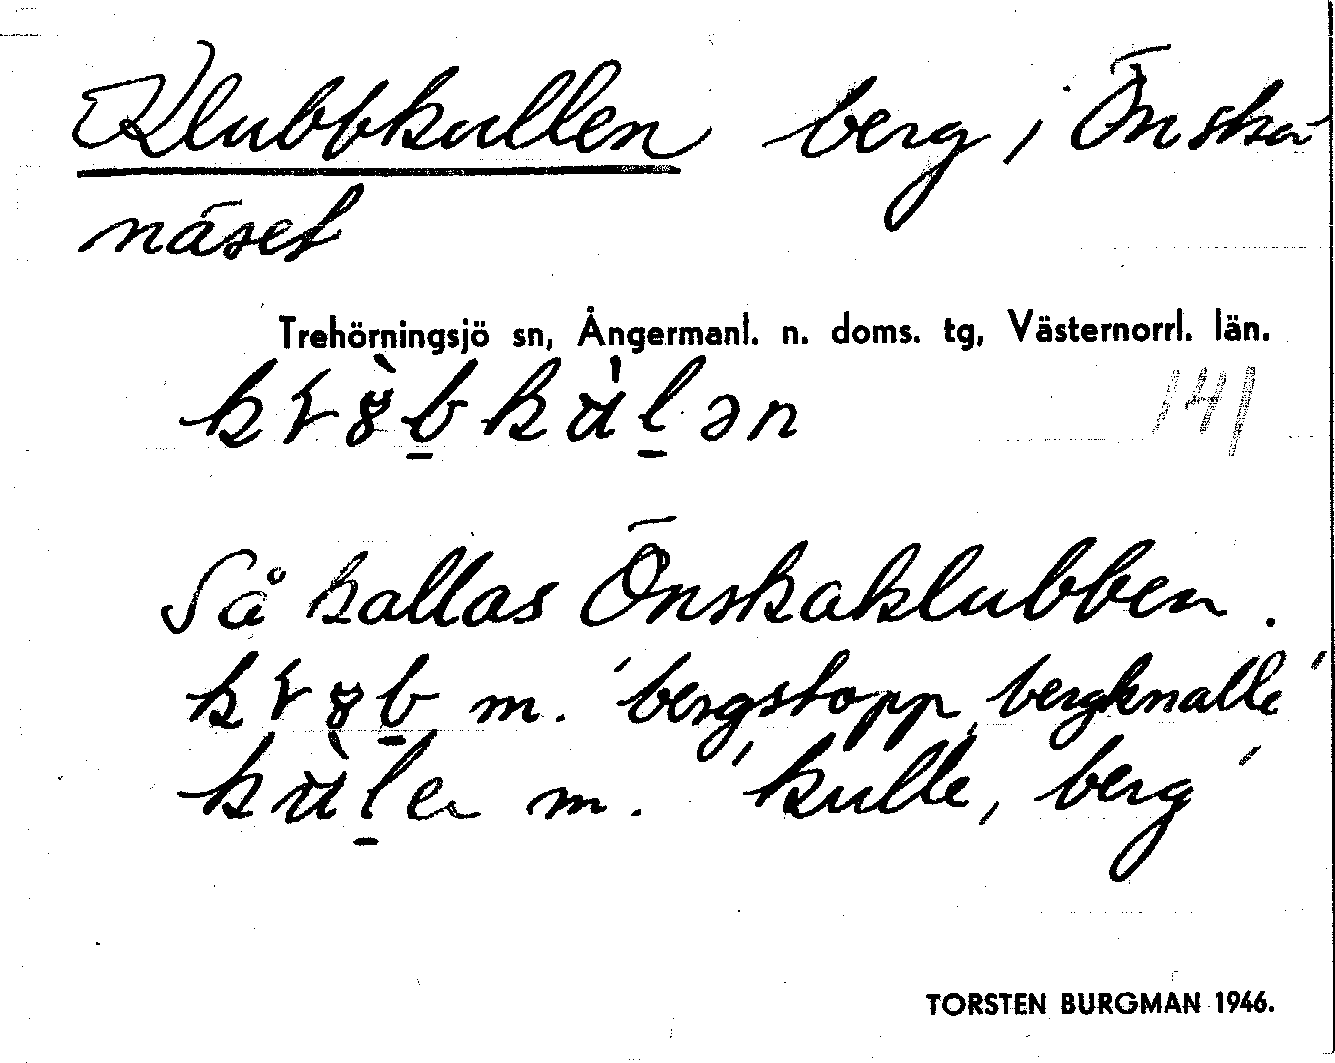 Klubbkullen berg i Önska
näset
Trehörningsjö sn, Ångermanl. n. doms. tg, Västernorrl. län.
141
Så kallas Önskaklubben.
m. 'bergstopp, bergknalle'
m. 'kulle, berg'
TORSTEN BURGMAN 1946.